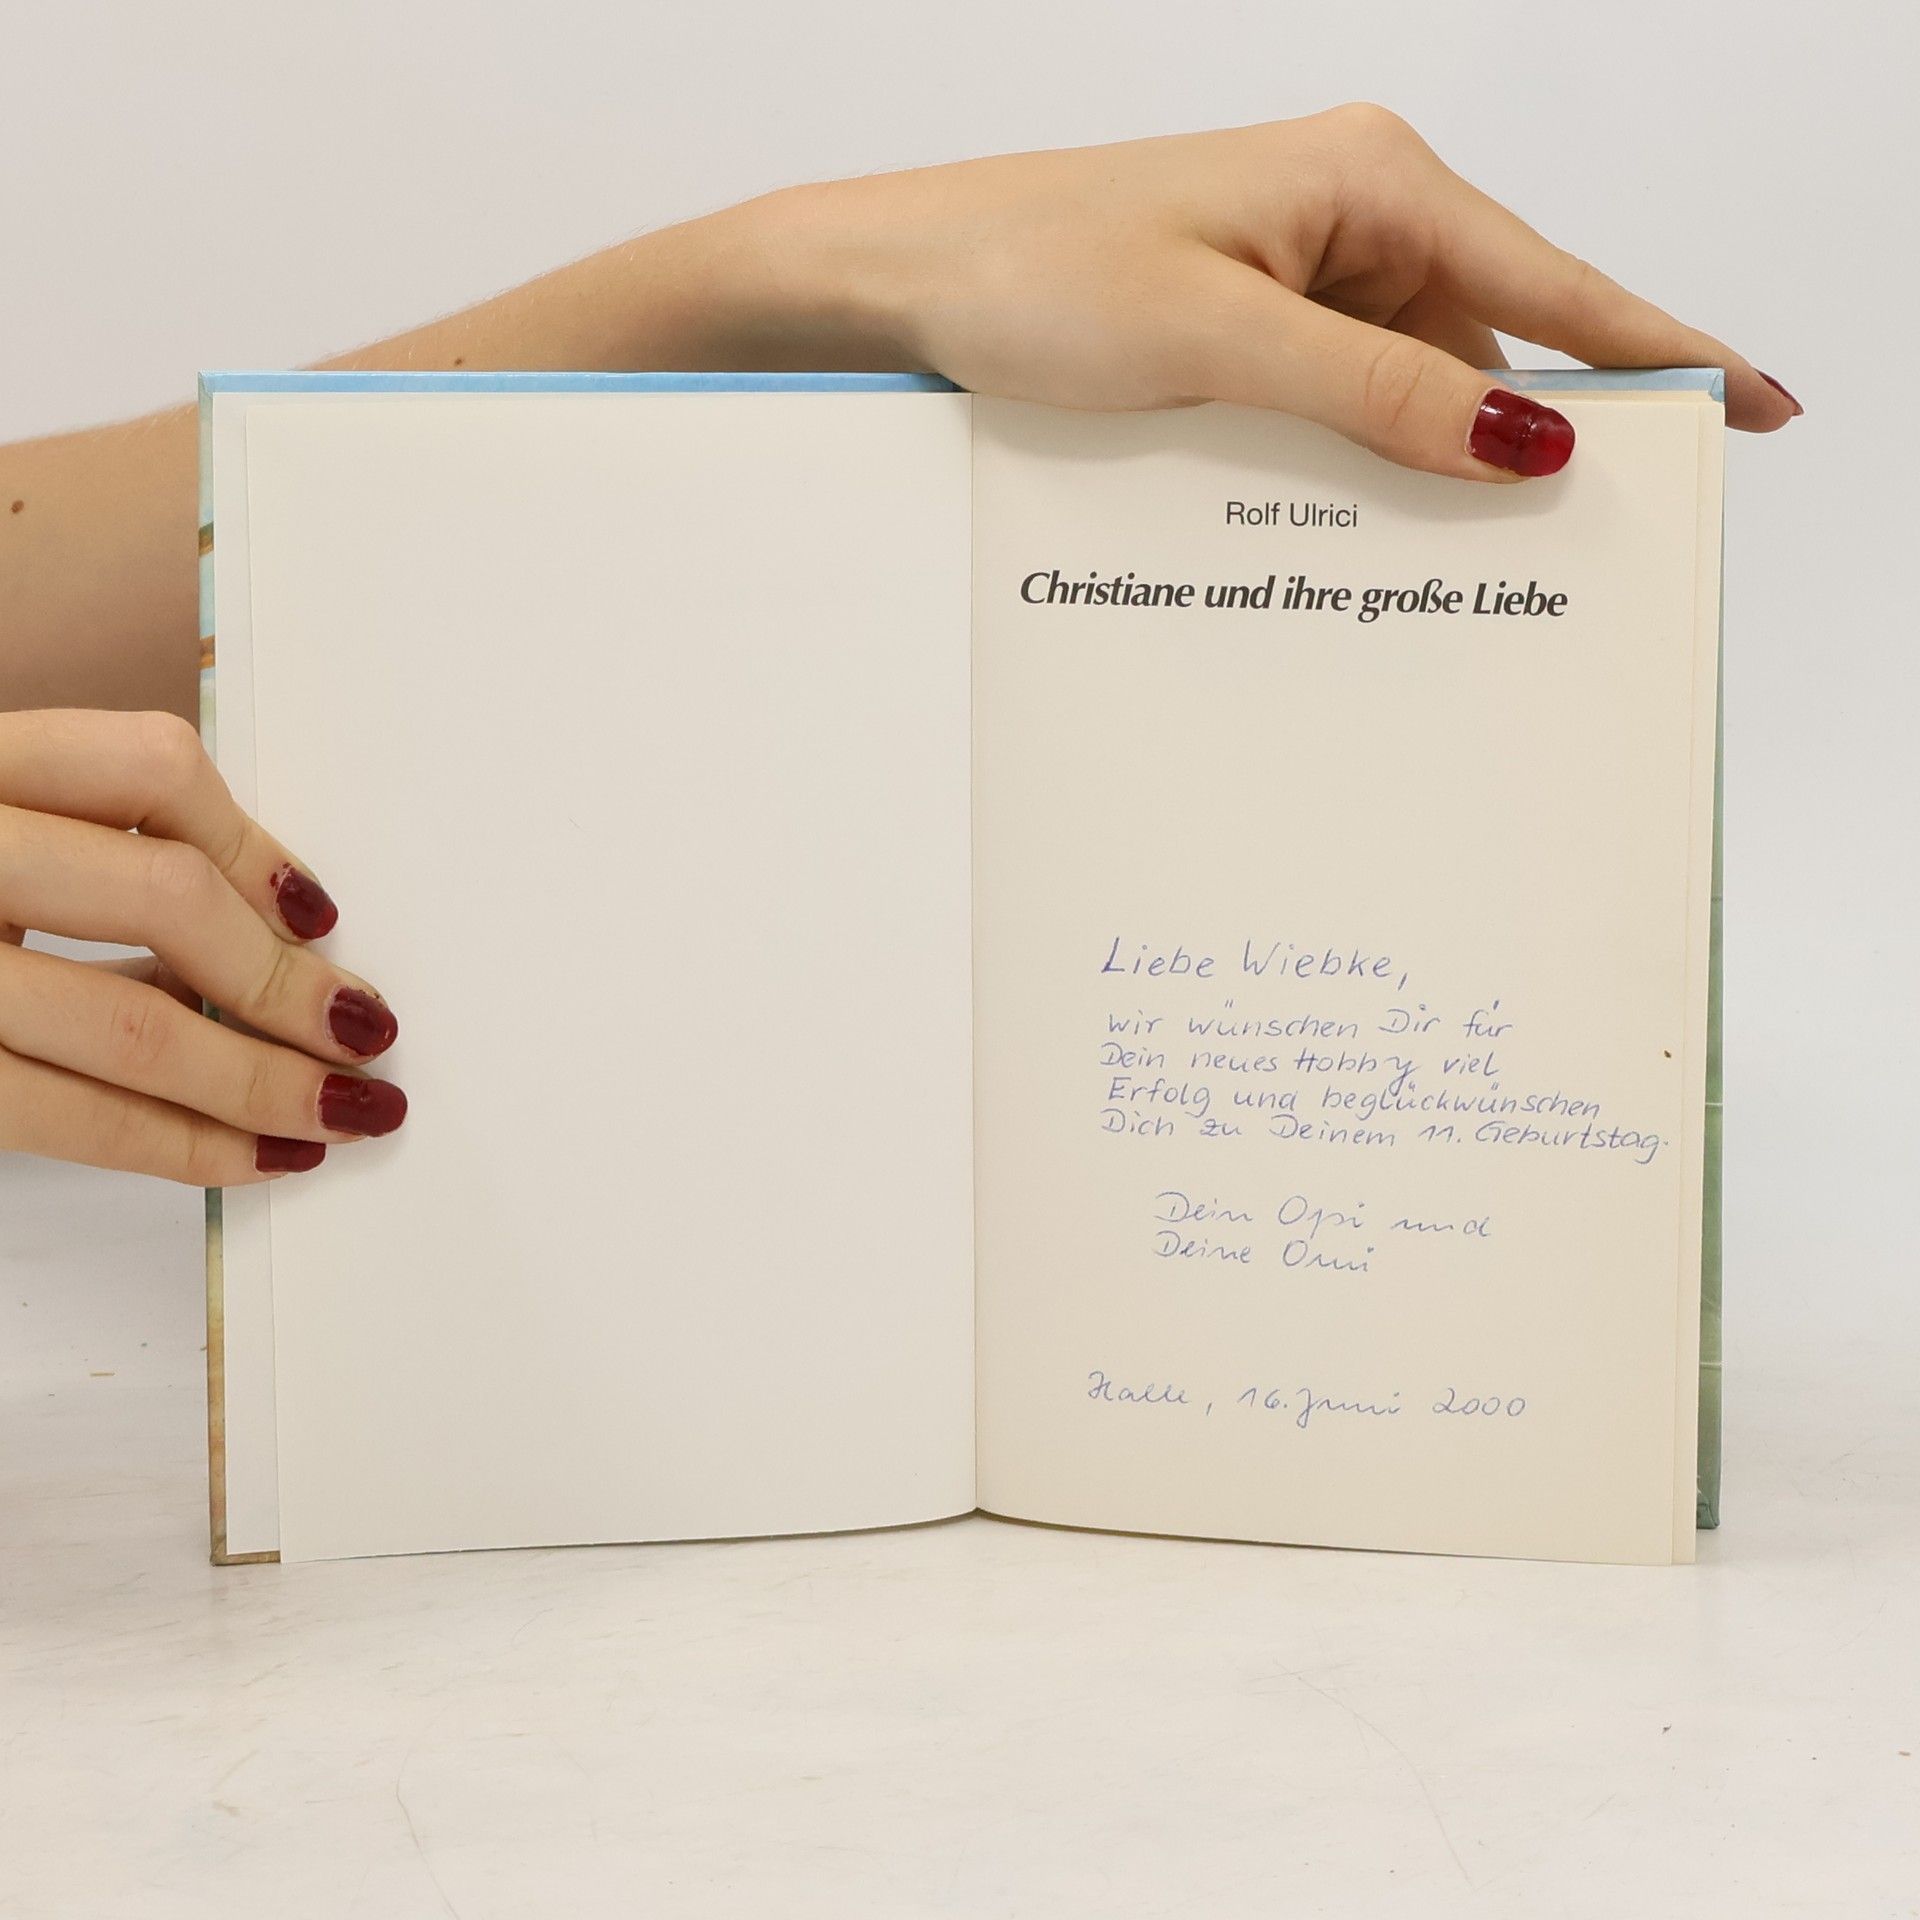 Rolf Ulrici
Christiane und ihre große Liebe
Liebe Wiebke,
wir wünschen Dir für
Dein neues Hobby viel
Erfolg und beglückwünschen
Dich zu Deinem 11. Geburtstag.
Dein Opi und
Deine Omi
Halle, 16. Juni 2000